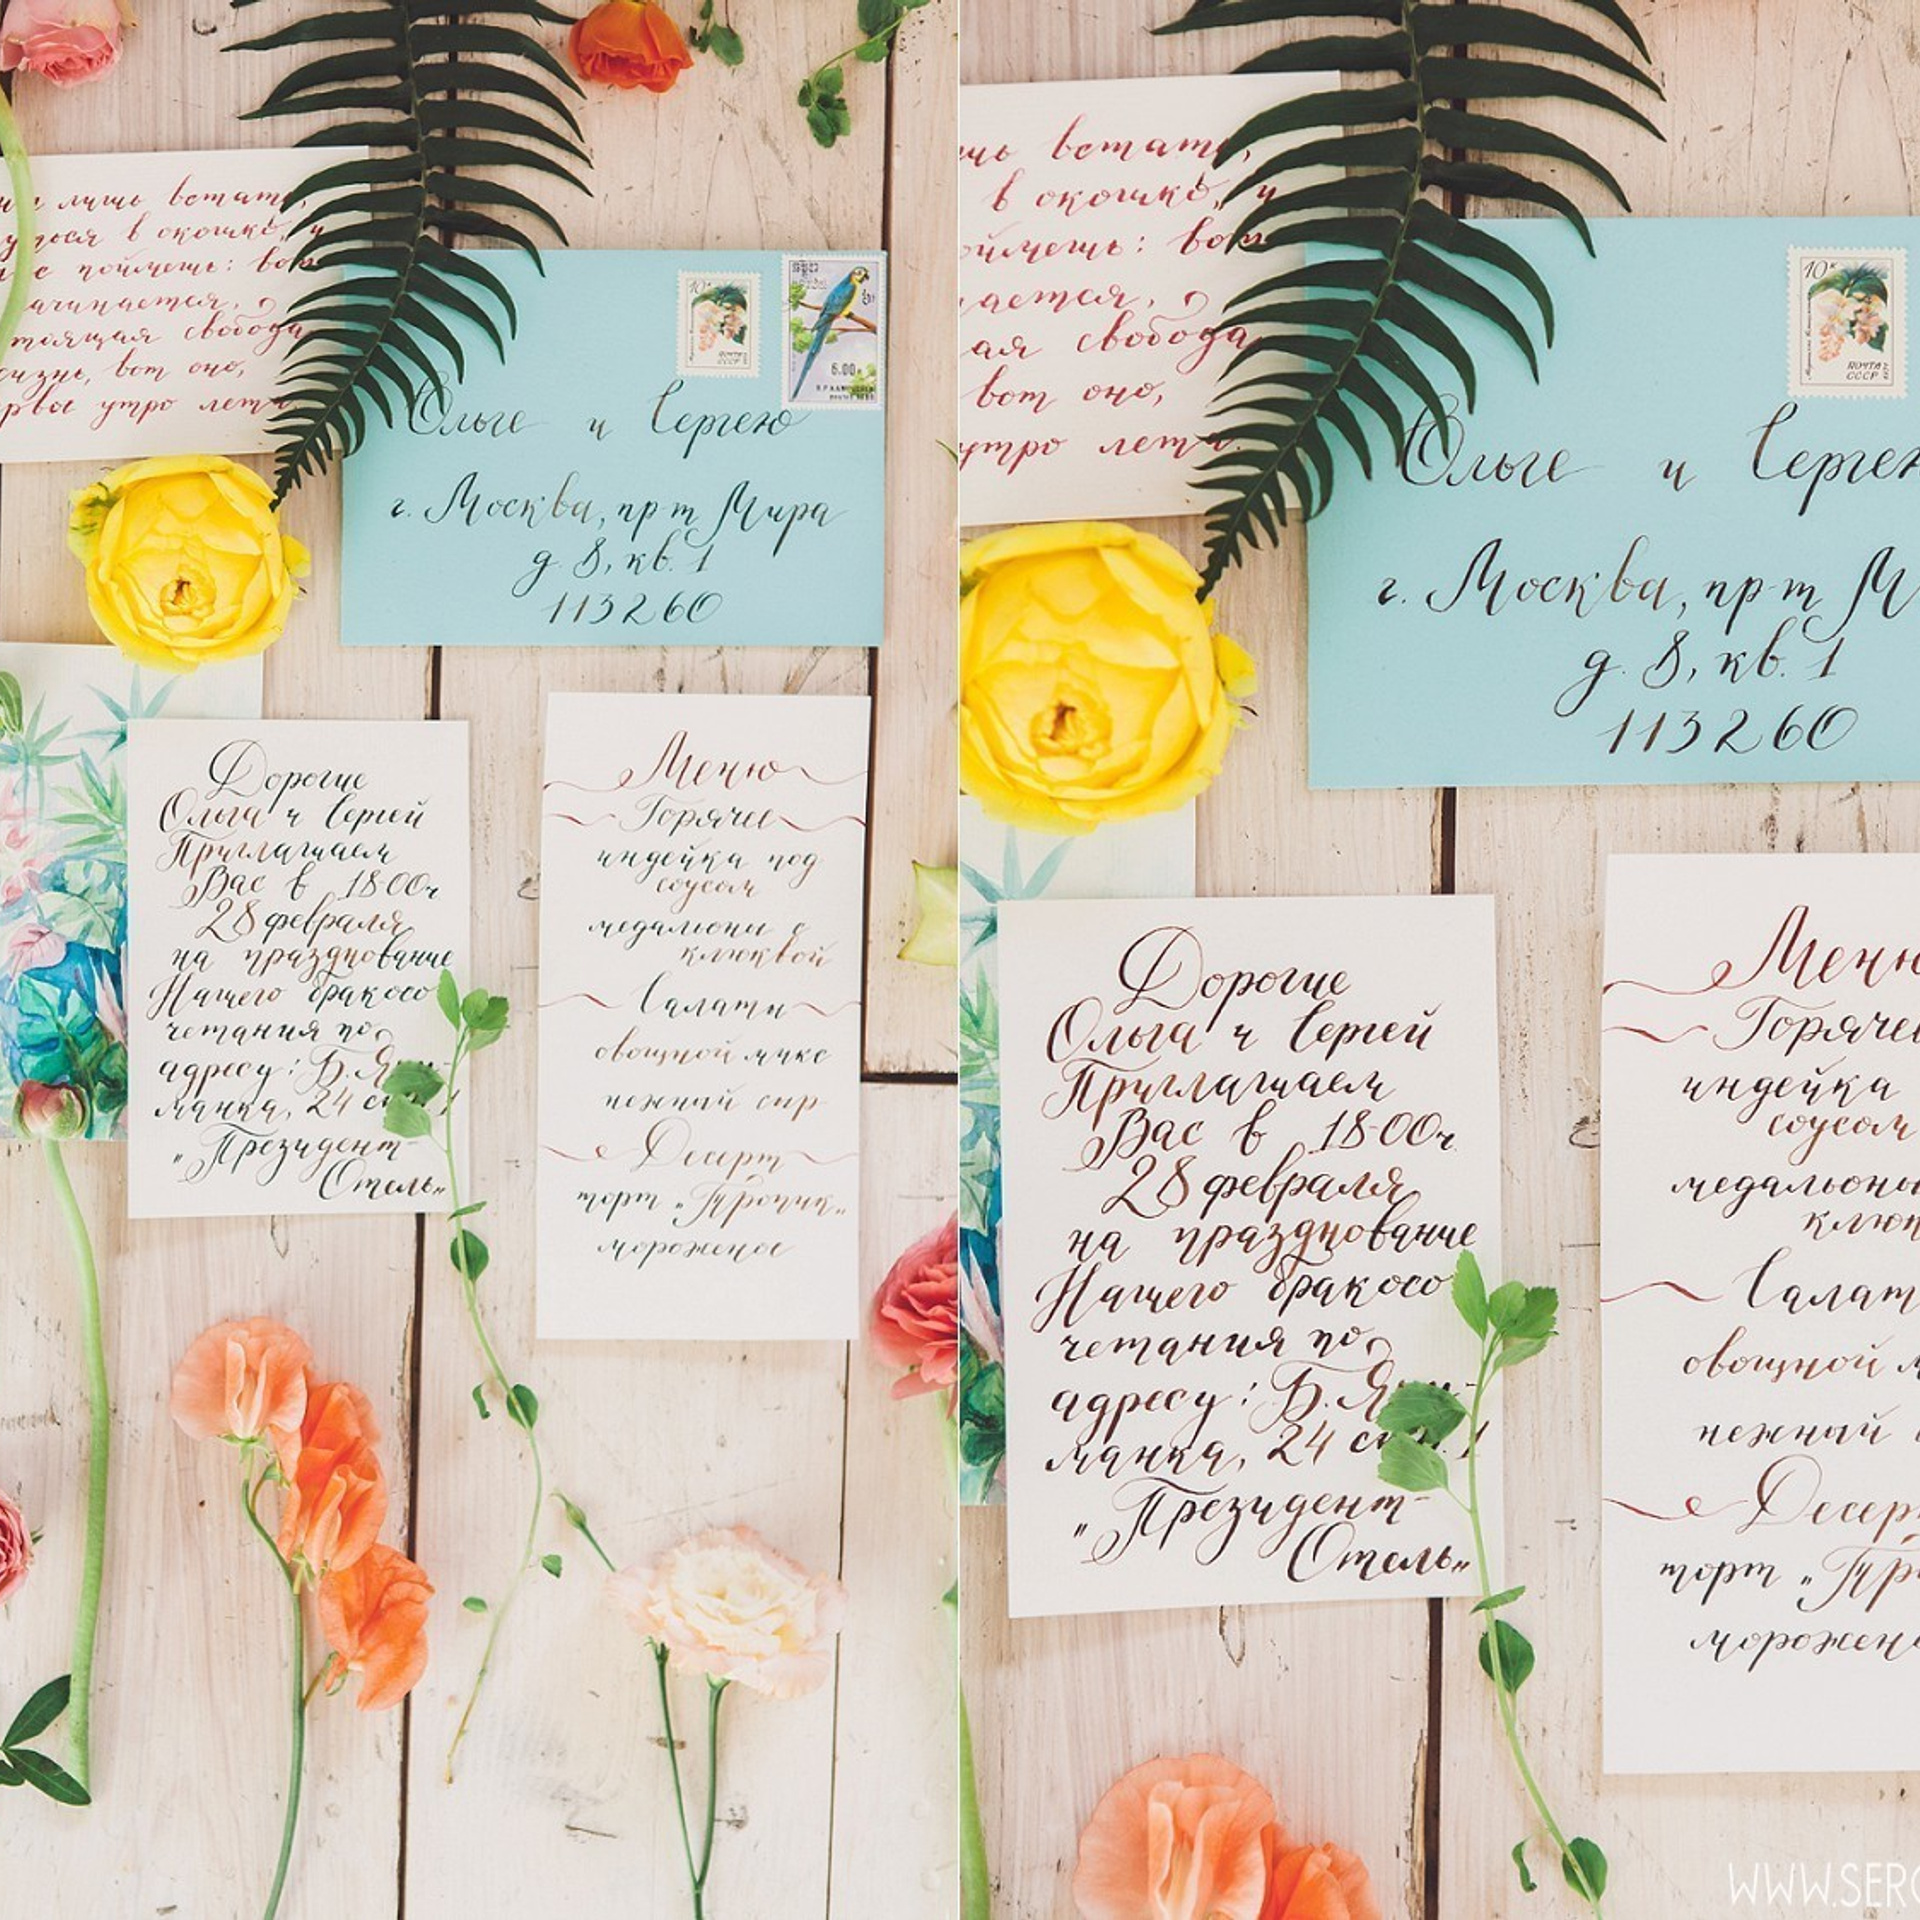 лишь встать,
в окошке, и
поймешь: вот
ачинается,
тоящая свобода
жизнь, вот оно,
рвое утро лета
10к
ПОЧТА
СССР
6.00
Ольге и Сергею
г. Москва, пр-т Мира
д. 8, кв. 1
113260
Дорогие
Ольга и Сергей
Приглашаем
Вас в 18-00ч
28 февраля
на празднование
Нашего бракосо
четания по
адресу: Б. Яки-
манка, 24 стр. 1
"Президент-
Отель"
Меню
Горячее
индейка под
соусом
медальоны с
клюквой
Салаты
овощной микс
нежный сыр
Десерт
торт "Тропик"
мороженое
встать,
в окошке, и
поймешь: вот
ается,
ая свобода
вот оно,
утро лета.
10к
ПОЧТА
СССР
Ольге и Серге
г. Москва, пр-т М
д. 8, кв. 1
113260
Дорогие
Ольга и Сергей
Приглашаем
Вас в 18-00ч
28 февраля
на празднование
Нашего бракосо
четания по
адресу: Б. Яки-
манка, 24 стр. 1
"Президент-
Отель"
Меню
Горячее
индейка
соусом
медальоны
клюк
Салат
овощной м
нежный
Десер
торт "Тро
морожено
WWW.SER